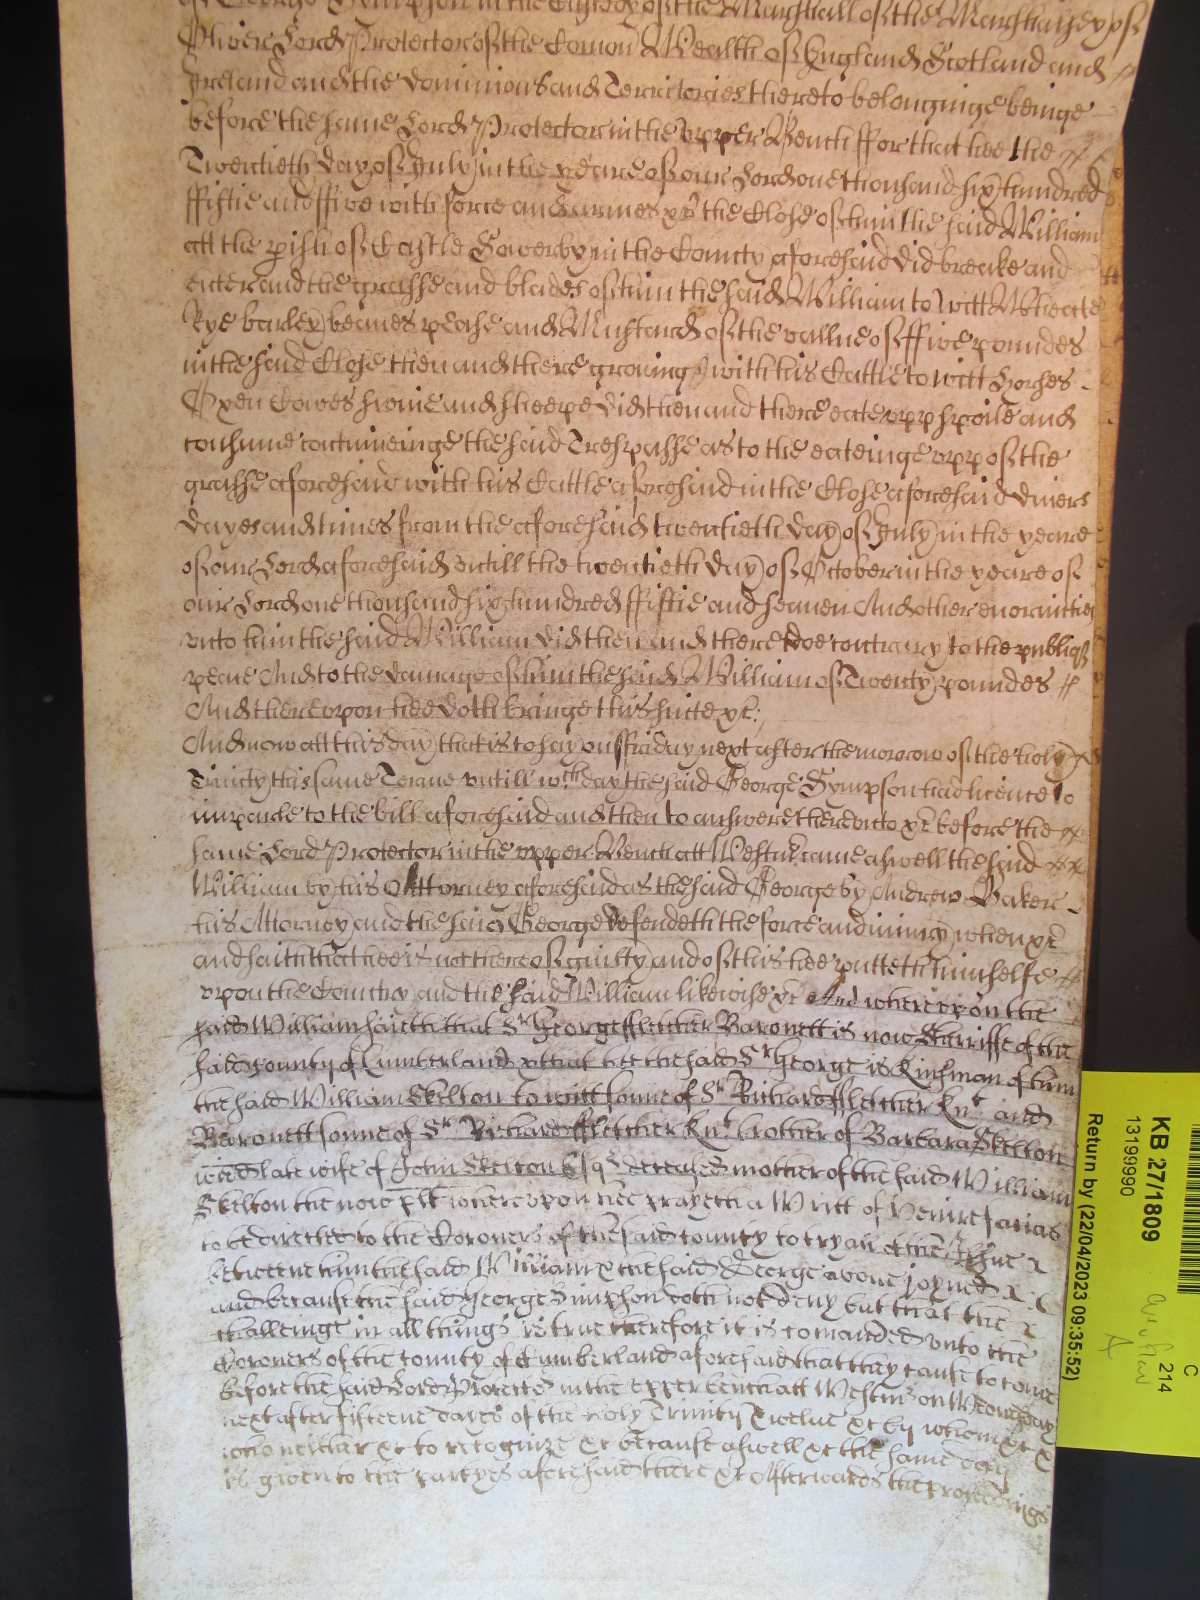 of George Sympson in the Custody of the Marshall of the Marshalsey of
Oliver Lord Protector of the Comon Wealth of England Scotland and
Ireland and the Dominions and Territories thereto belonginge beinge
before the same Lord Protector in the vpper Bench ffor that hee the
Twentieth day of July in the yeare of our Lord one thousand six hundred
ffiftie and ffive with force and armes xc the Close of him the said William
att the pish of Castle Sowerby in the County aforesaid did breake and
enter and the grasse and blades of him the said William to witt Wheate
Rye barley beanes pease and Mustard of the vallue of ffive poundes
in the said Close then and there growing with his Cattle to witt Horses
Oxen Cowes swine and sheepe did then and there eate vpp spoile and
consume contineinge the said Trespasse as to the eateinge vpp of the
grasse aforesaid with his Cattle aforesaid in the Close aforesaid divers
dayes and times from the aforesaid twentieth day of July in the yeare
of our Lord aforesaid vntill the twentieth day of October in the yeare of
our Lord one thousand six hundred ffiftie and seaven And other enormities
vnto him the said William did then and there doe contrary to the publiq
peace And to the damage of him the said William of Twenty poundes
And therevpon hee doth bringe this suite xc:
And now att this day that is to say on ffriday next after the morrow of the holy
Trinity this same Terme vntill wch day the said George Sympson had licence to
imparle to the bill aforesaid and then to answere therevnto xc before the
same Lord Protector in the vpper Bench att Westm came aswell the said
William by his Attorney aforesaid as the said George by Andrew Baker
his Attorney and the said George defendeth the force and iniury when xc
and saith that hee is not thereof guilty and of this hee putteth himselfe
vpon the Country and the said William likewise xc And wherevpon the
said William saieth that Sr George ffletcher Baronett is now Sherriffe of the
said county of Cumberland & that hee the said Sr George is kinsman of him
the said William Skelton to witt sonne of Sr Richard ffletcher Knt and
Baronett sonne of Sr Richard ffletcher Knt brother of Barbara Skelton
late wife of John Skelton Esqr deceased mother of the said William
Skelton the now plt wherevpon hee prayeth a Writt of Venire facias
to be directed to the Coroners of the said county to try all the Issue
betweene him the said William & the said George above joyned
and because the said George Simpson doth not deny but that the
challenge in all things is true therefore it is comanded vnto the
Coroners of the county of Cumberland aforesaid that they cause to come
before the said Lord Protector in the vpper bench att Westmr on Wednesday
next after fifteene dayes of the holy Trinity Twelve xc by whom xc
who neither xc to recognize xc because aswell xc the same day
is given to the partyes aforesaid there xc Afterwards the proceedings
KB 27/1809
13199990
Return by (22/04/2023 09:35:52)
C
214